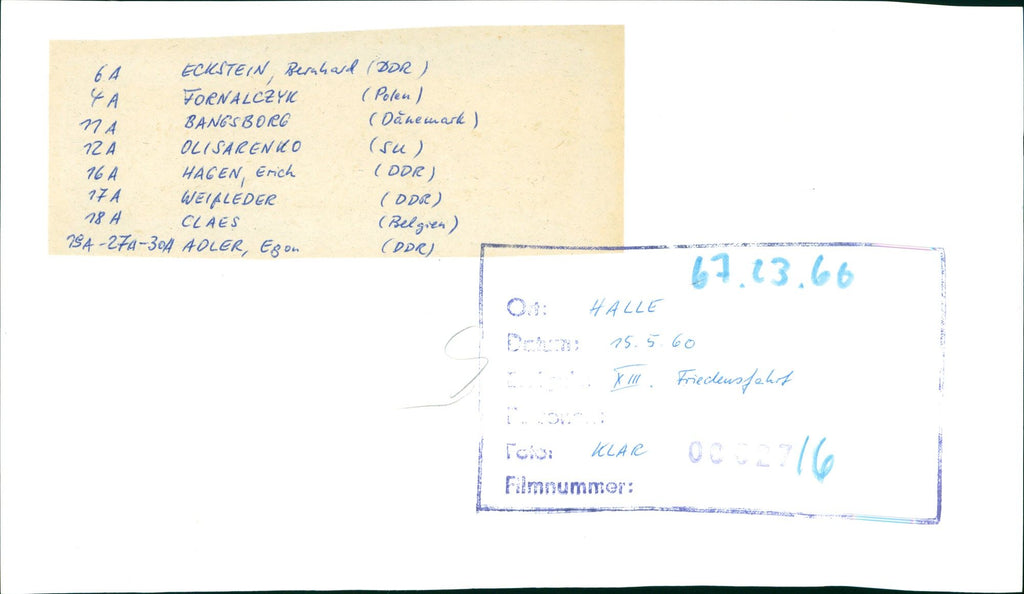 6A ECKSTEIN, Bernhard (DDR)
4A FORNALCZYK (Polen)
11A BANGSBORG (Dänemark)
12A OLISARENKO (SU)
16A HAGEN, Erich (DDR)
17A WEIßLEDER (DDR)
18A CLAES (Belgien)
19A-27A-30A ADLER, Egon (DDR)
67.23.66
Ort: HALLE
Datum: 15.5.60
XIII. Friedensfahrt
Foto: KLAR 00027/6
Filmnummer: